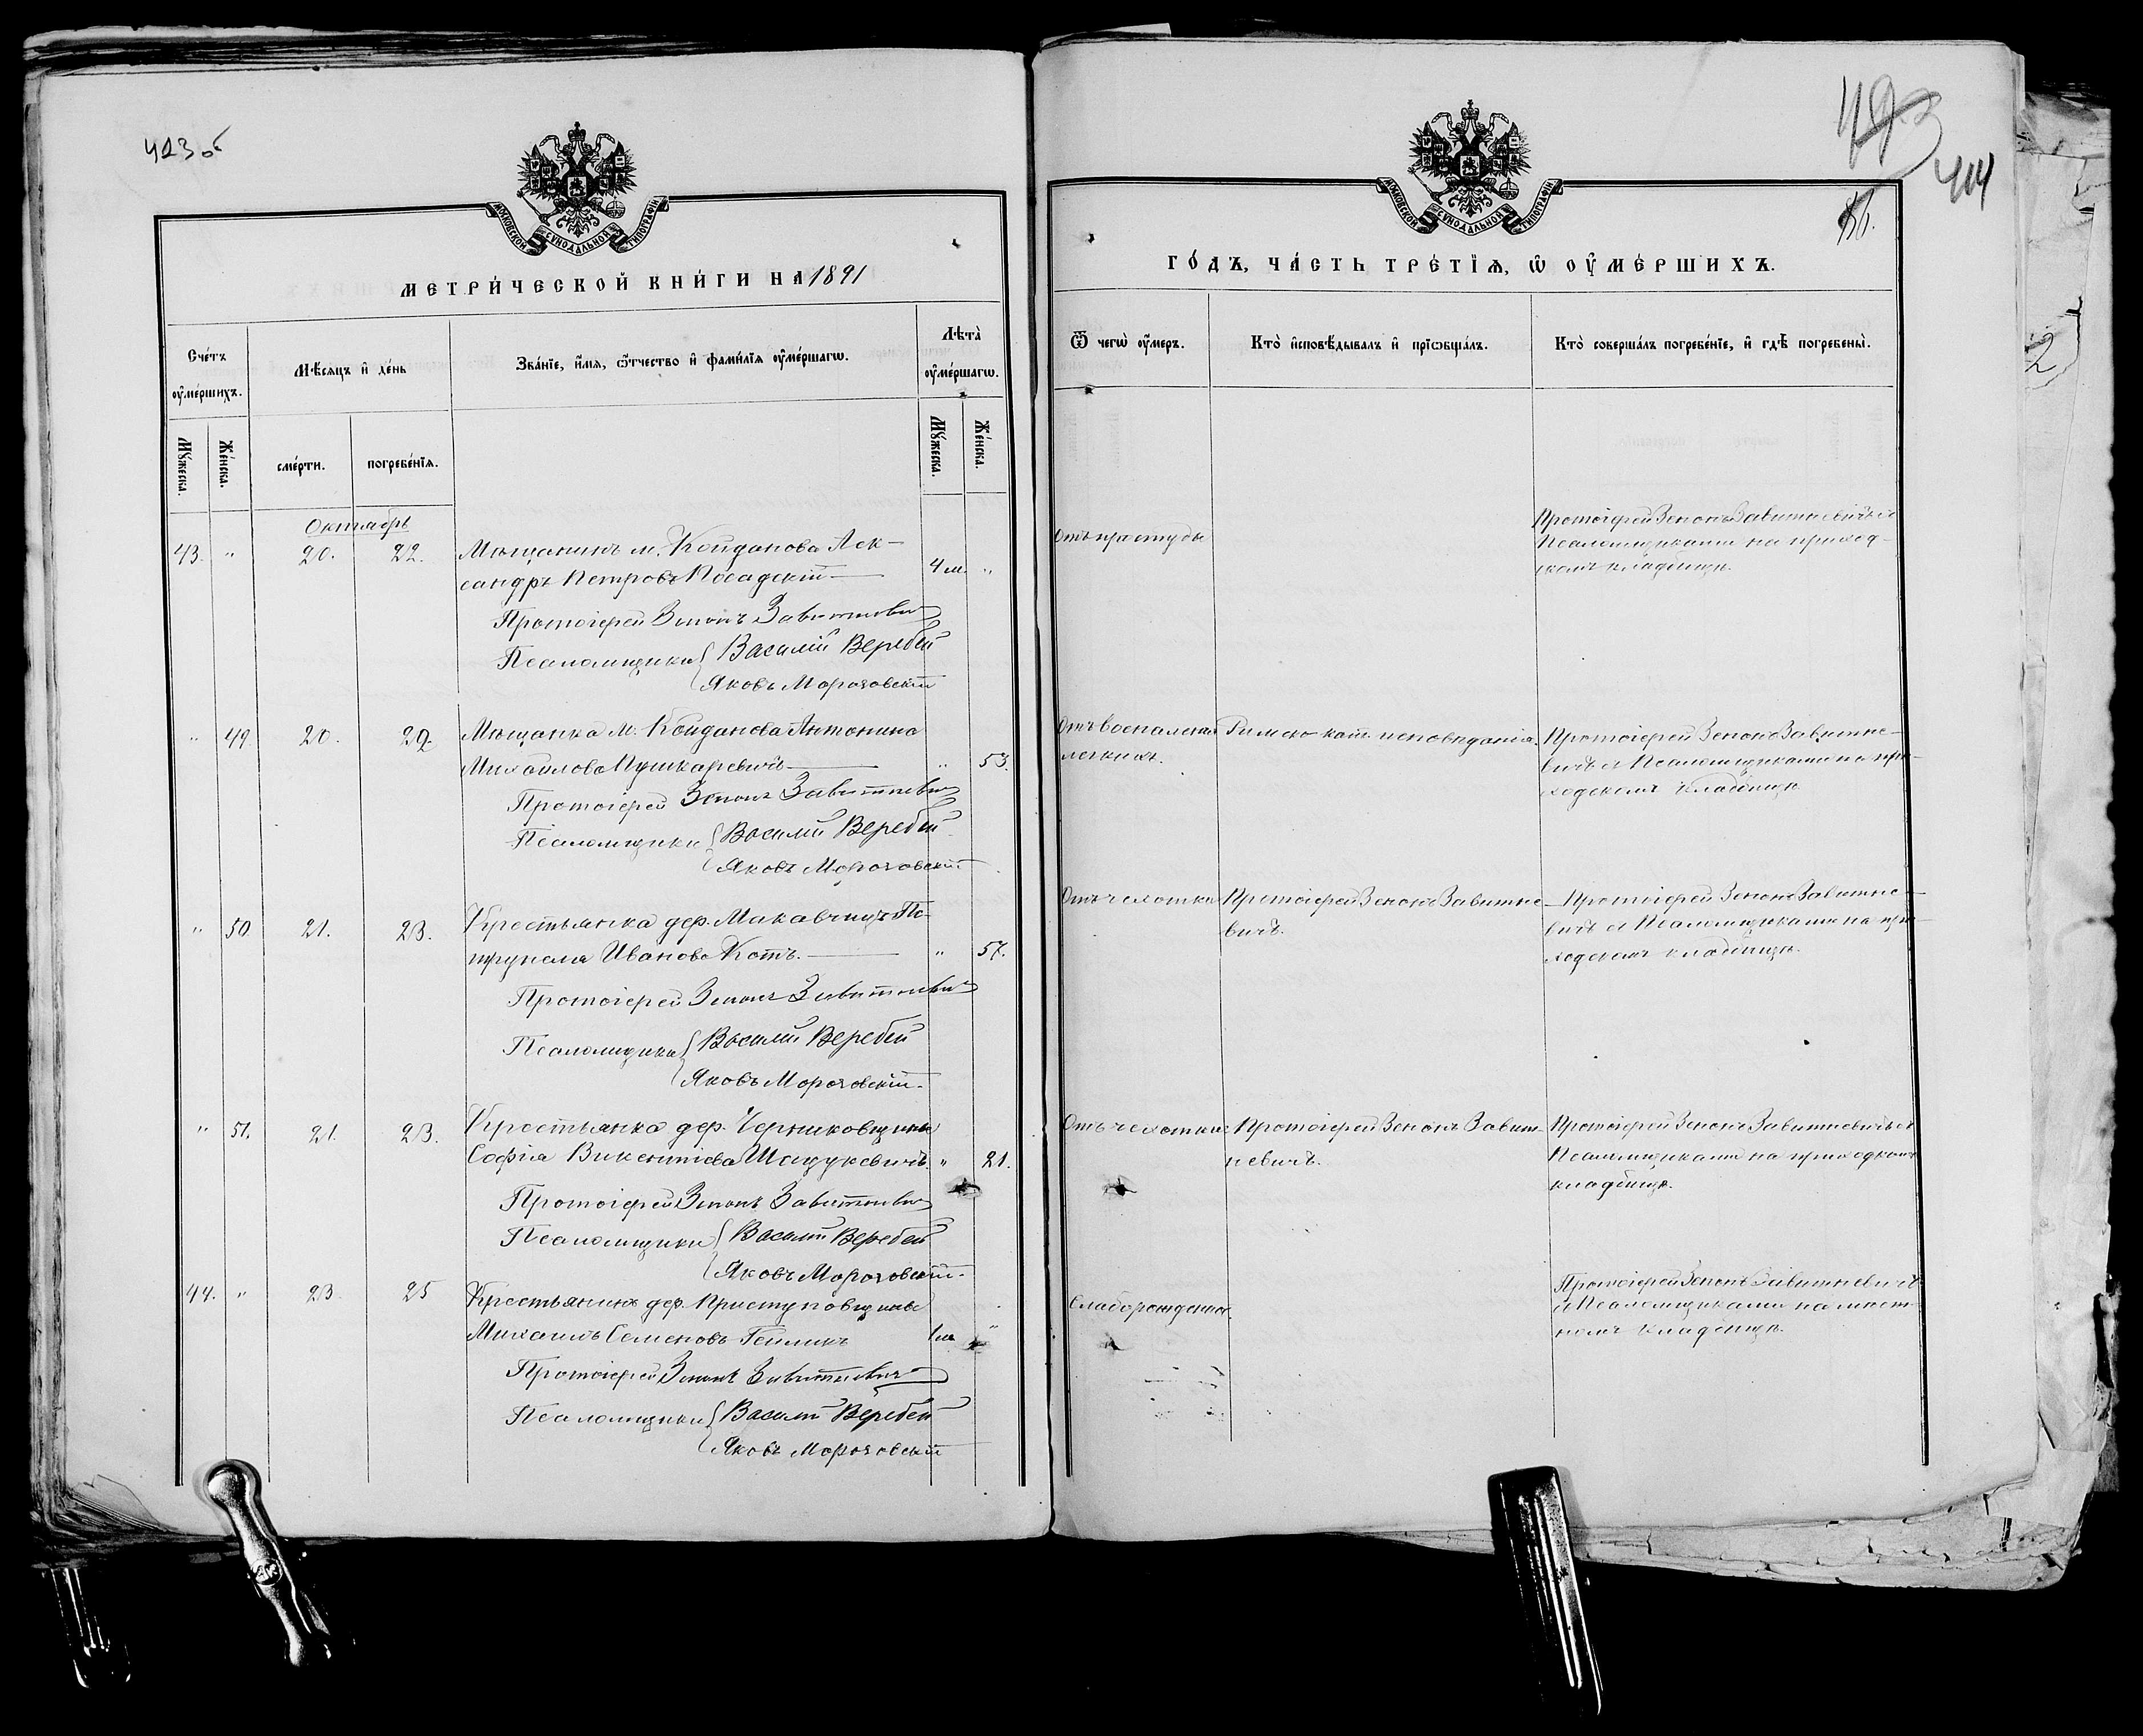 423 об
МОСКОВСКОЙ СѴНОДАЛЬНОЙ ТИПОГРАФІИ
МЕТРИ́ЧЕСКОЙ КНИ́ГИ НА 1891
Сче́тъ ᲂу҆ме́ршихъ.
Мѣ́сяцъ и҆ де́нь
Зва́нїе, и҆́мя, ѻ҆́тчество и҆ фами́лїя ᲂу҆ме́ршагѡ.
Лѣта̀ ᲂу҆ме́ршагѡ.
Мꙋ́жеска.
Же́нска.
сме́рти.
погребе́нїя.
Мꙋ́жеска.
Же́нска.
Октябрь
43. " 20. 22. Мѣщанинъ м. Койданова Алек-
сандръ Петровъ Посадскій 4 м. "
Протоіерей Зенонъ Завитневич
Псаломщики { Василій Веребей
Яковъ Морозовскій
" 49. 20. 22. Мѣщанка м. Койданова Антонина
Михайлова Пушкаревичъ " 53.
Протоіерей Зенонъ Завитневич
Псаломщики { Василій Веребей
Яковъ Морозовскій
" 50. 21. 23. Крестьянка дер. Макавчицъ Пе-
трунеля Иванова Котъ. " 57.
Протоіерей Зенонъ Завитневич
Псаломщики { Василій Веребей
Яковъ Морозовскій.
" 51. 21. 23. Крестьянка дер. Черниковщины
Софія Викентіева Шацукевичъ. " 21.
Протоіерей Зенонъ Завитневич
Псаломщики { Василій Веребей
Яковъ Морозовскій.
44. " 23. 25 Крестьянинъ дер. Приступовщины
Михаилъ Семеновъ Гейликъ 1 м. "
Протоіерей Зенонъ Завитневич
Псаломщики { Василій Веребей
Яковъ Морозовскій
423
414
МОСКОВСКОЙ СѴНОДАЛЬНОЙ ТИПОГРАФІИ
ГО́ДЪ, ЧА́СТЬ ТРЕ́ТЇЯ, Ѡ҆ ОУ҆МЕ́РШИХЪ.
Ѿ чегѡ̀ ᲂу҆́меръ.
Кто̀ и҆сповѣ́дывалъ и҆ прїѡбща́лъ.
Кто̀ соверша́лъ погребе́нїе, и҆ гдѣ̀ погребены̀.
Отъ простуды
Протоіерей Зенонъ Завитневичъ съ
Псаломщиками на приход-
скомъ кладбищѣ.
Отъ воспаленія
легкихъ.
Римско-кат. исповѣданія.
Протоіерей Зенонъ Завитне-
вичъ съ Псаломщиками на при-
ходскомъ кладбищѣ
Отъ чехотки
Протоіерей Зенонъ Завитне-
вичъ.
Протоіерей Зенонъ Завитне-
вичъ съ Псаломщиками на при-
ходскомъ кладбищѣ.
Отъ чехотки
Протоіерей Зенонъ Завит-
невичъ.
Протоіерей Зенонъ Завитневичъ съ
Псаломщиками на приходском
кладбищѣ.
Слаборожденія
Протоіерей Зенонъ Завитневичъ
съ Псаломщиками на мѣст-
номъ кладбищѣ.
2